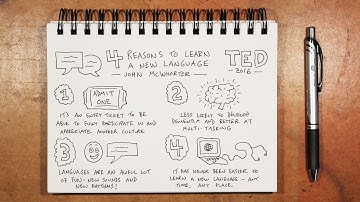 4 REASONS TO LEARN
A NEW LANGUAGE
JOHN McWHORTER
TED
2016
1
ADMIT
ONE
IT'S AN ENTRY TICKET TO BE
ABLE TO FULLY PARTICIPATE IN AND
APPRECIATE ANOTHER CULTURE
2
LESS LIKELY TO DEVELOP
DEMENTIA AND BETTER AT
MULTI-TASKING
3
LANGUAGES ARE AN AWFUL LOT
OF FUN - NEW SOUNDS AND
NEW RHYTHMS!
4
IT HAS NEVER BEEN EASIER TO
LEARN A NEW LANGUAGE - ANY
TIME, ANY PLACE.